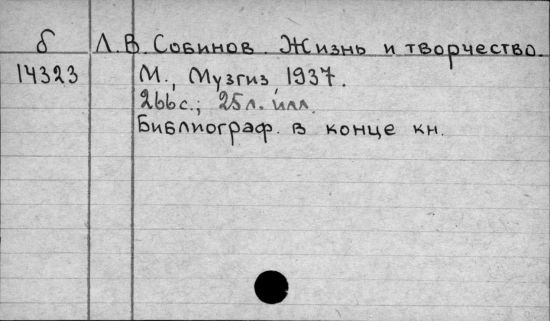 б Л.В. Собинов. Жизнь и творчество.
14323 М., Музгиз, 1937.
266 с.; 25 л. илл.
Библиограф. в конце кн.